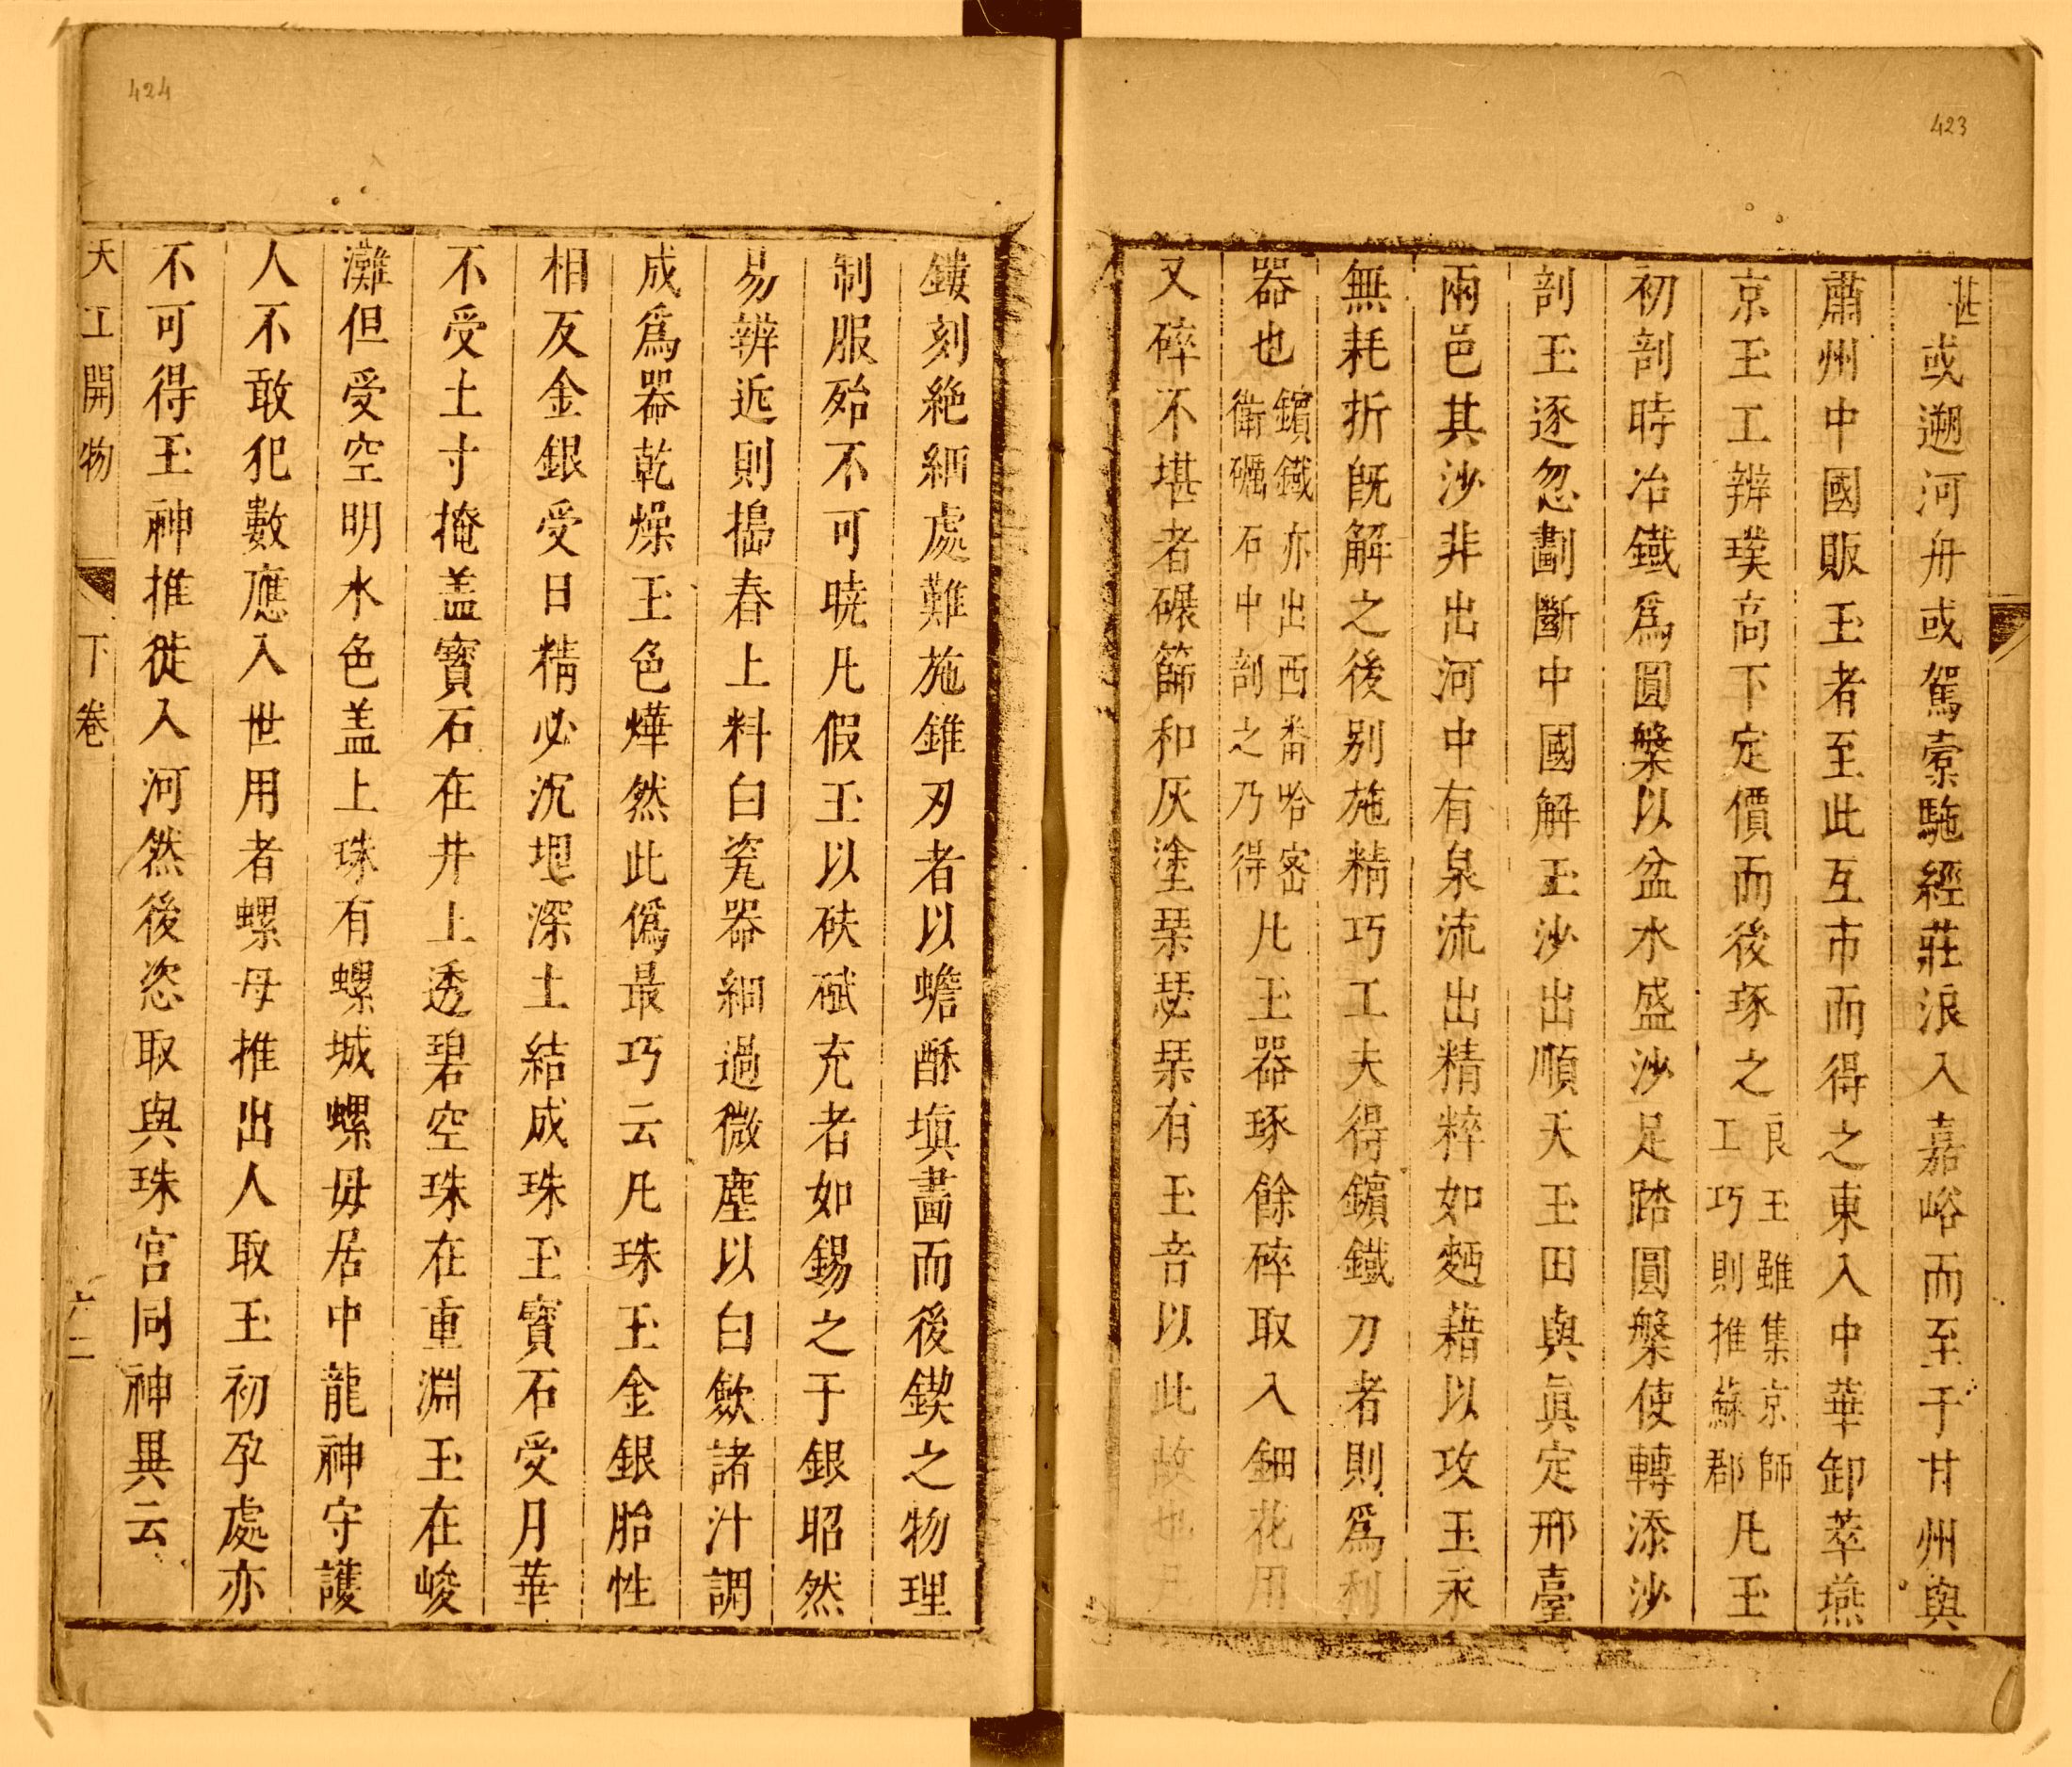 423
甚
或遡河舟或駕橐駞經莊浪入嘉峪而至于甘州與
肅州中國販玉者至此互市而得之東入中華卸萃燕
京玉工辨璞高下定價而後琢之
良玉雖集京師
工巧則推蘇郡
凡玉
初剖時冶鐵爲圓槃以盆水盛沙足踏圓槃使轉添沙
剖玉逐忽劃斷中國解玉沙出順天玉田與眞定邢臺
兩邑其沙非出河中有泉流出精粹如麪藉以攻玉永
無耗折旣解之後別施精巧工夫得鑌鐵刀者則爲利
器也
鑌鐵亦出西畨哈密
衛礪石中剖之乃得
凡玉器琢餘碎取入鈿花用
又碎不堪者碾篩和灰塗琹瑟琹有玉音以此故也凡
424
鏤刻絶細處難施錐刃者以蟾酥塡畫而後鍥之物理
制服殆不可曉凡假玉以砆碔充者如錫之于銀昭然
易辨近則搗舂上料白瓷器細過微塵以白蘞諸汁調
成爲器乾燥玉色燁然此僞最巧云凡珠玉金銀胎性
相反金銀受日精必沉埋深土結成珠玉寳石受月華
不受土寸掩盖寳石在井上透碧空珠在重淵玉在峻
灘但受空明水色盖上珠有螺城螺母居中龍神守護
人不敢犯數應入世用者螺母推出人取玉初孕處亦
不可得玉神推徙入河然後恣取與珠宮同神異云
天工開物
下卷
六二